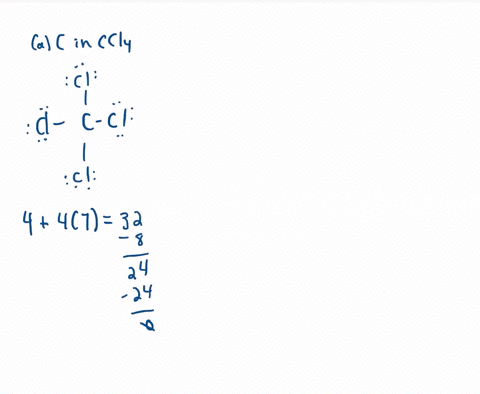 (a) C in CCl4
:Cl:
:Cl - C - Cl:
:Cl:
4 + 4(7) = 32
- 8
24
- 24
0